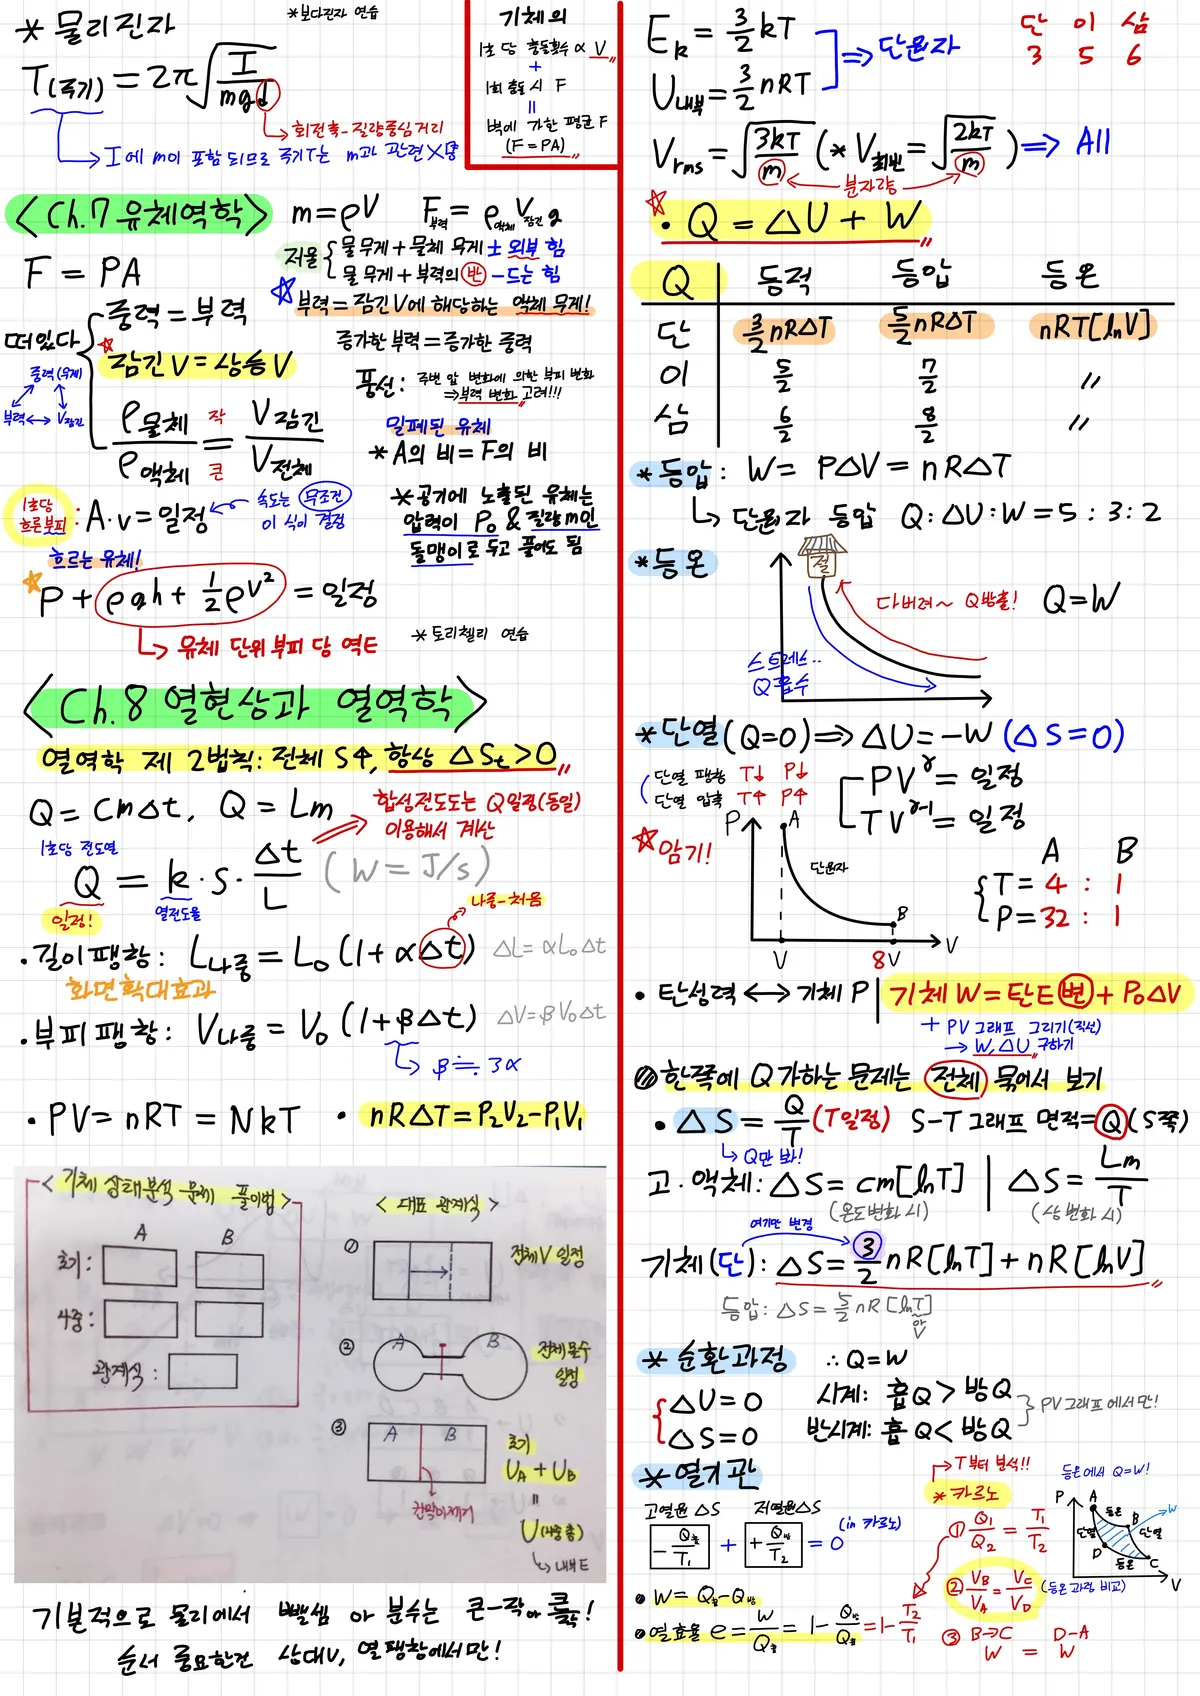 * 물리진자
*보다진자 연습
T(주기) = 2π√(I/mgd)
→ 회전축-질량중심거리
→ I에 m이 포함 되므로 주기T는 m과 관련X명
기체의
1초 당 충돌횟수 ∝ V
+
1회 충돌 시 F
||
벽에 가한 평균 F
(F = PA)
<Ch.7 유체역학>
m = ρV F부력 = ρ액체 V잠긴 g
저울 { 물 무게 + 물체 무게 ± 외부 힘
물 무게 + 부력의 반 - 드는 힘
F = PA
☆ 부력 = 잠긴 V에 해당하는 액체 무게!
떠있다
중력 = 부력
증가한 부력 = 증가한 중력
* 잠긴 V = 상승 V
풍선: 주변 압 변화에 의한 부피 변화
⇒ 부력 변화 고려!!!
중력(무게)
부력 ↔ V잠긴
ρ물체/ρ액체 = V잠긴/V전체
작
큰
밀폐된 유체
* A의 비 = F의 비
1초당 흐른부피: A·v = 일정
속도는 무조건
이 식이 결정
* 공기에 노출된 유체는
압력이 P₀ & 질량 m인
돌맹이로 두고 풀어도 됨
흐르는 유체!
☆ P + ρgh + ½ρv² = 일정
→ 유체 단위 부피 당 역E
* 토리첼리 연습
<Ch.8 열현상과 열역학>
열역학 제 2법칙: 전체 S↑, 항상 ΔSt > 0
Q = cmΔt, Q = Lm
합성전도도는 Q일정(동일)
이용해서 계산
1초당 전도열
Q = k·S·Δt/L (W = J/s)
일정!
열전도율
나중-처음
· 길이팽창: L나중 = L₀(1+αΔt) ΔL = αL₀Δt
화면확대효과
· 부피팽창: V나중 = V₀(1+βΔt) ΔV = βV₀Δt
→ β ≒ 3α
· PV = nRT = NkT · nRΔT = P₂V₂ - P₁V₁
<기체 상태분석 문제 풀이법>
A B
초기:
나중:
관계식:
<대표 관계식>
① 전체V 일정
② A B 전체 몰수
일정
③ A B 초기
UA + UB
||
U(나중 총)
→ 내부E
칸막이제거
기본적으로 물리에서 뺄셈 아 분수는 큰-작
순서 중요한건 상대V, 열팽창에서만!
Ek = 3/2 kT
U내부 = 3/2 nRT
⇒ 단원자
단 이 삼
3 5 6
Vrms = √(3kT/m) (* V최빈 = √(2kT/m)) ⇒ All
분자량
☆ · Q = ΔU + W
Q 등적 등압 등온
단 3/2 nRΔT 5/2 nRΔT nRT[lnV]
이 5/2 7/2 〃
삼 6/2 8/2 〃
* 등압: W = PΔV = nRΔT
→ 단원자 등압 Q:ΔU:W = 5:3:2
* 등온
절
다버려~ Q방출! Q = W
스트레스..
Q흡수
* 단열(Q=0) ⇒ ΔU = -W (ΔS=0)
단열 팽창 T↓ P↓
단열 압축 T↑ P↑
PV^γ = 일정
TV^γ-1 = 일정
☆ 암기!
P A 단원자 B V
V 8V
A B
T = 4 : 1
P = 32 : 1
· 탄성력 ↔ 기체 P | 기체 W = 탄E변 + P₀ΔV
+ PV 그래프 그리기(직선)
→ W, ΔU 구하기
◎ 한쪽에 Q 가하는 문제는 전체 묶어서 보기
· ΔS = Q/T (T일정) S-T 그래프 면적 = Q (S쪽)
→ Q만 봐!
고·액체: ΔS = cm[lnT] | ΔS = Lm/T
(온도변화 시) (상 변화 시)
여기만 변경
기체(단): ΔS = 3/2 nR[lnT] + nR[lnV]
등압: ΔS = 5/2 nR[lnT]
V
* 순환과정 ∴ Q = W
{ ΔU = 0
ΔS = 0
시계: 흡Q > 방Q
반시계: 흡Q < 방Q
} PV그래프에서만!
* 열기관
고열원 ΔS 저열원 ΔS
-Q흡/T₁ + +Q방/T₂ = 0 (in 카르노)
· W = Q흡 - Q방
· 열효율 e = W/Q흡 = 1 - Q방/Q흡 = 1 - T₂/T₁
→ T부터 분석!!
* 카르노
① Q₁/Q₂ = T₁/T₂
② VB/VA = VC/VD (등온 과정 비교)
③ B→C D-A
W = W
등온에서 Q=W!
P A 등온 B W
단열 단열
D 등온 C V